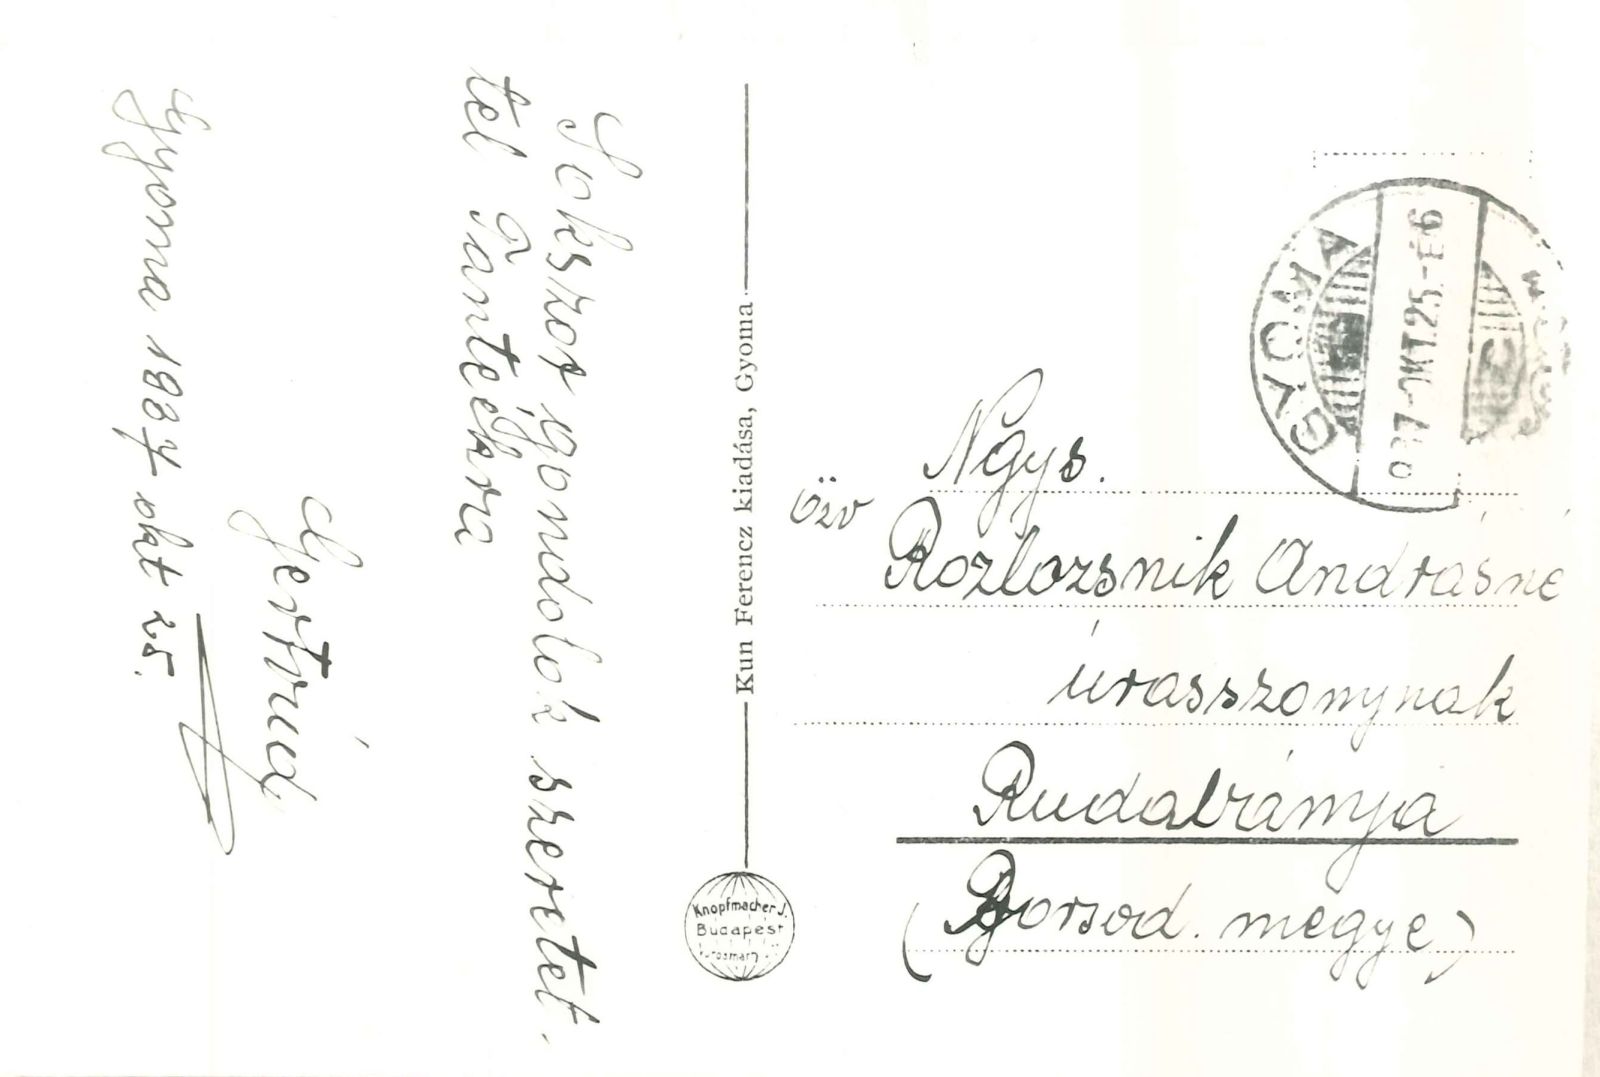 Sokszor gondolok szeretet-
tel Tantékra
Gertrúd
Gyoma 1937 okt 25.
Kun Ferencz kiadása, Gyoma.
Knopfmacher J.
Budapest
GYOMA
937-OKT.25.-E6
Ngys.
özv
Rozlozsnik Andrásné
úrasszonynak
Rudabánya
(Borsod. megye)